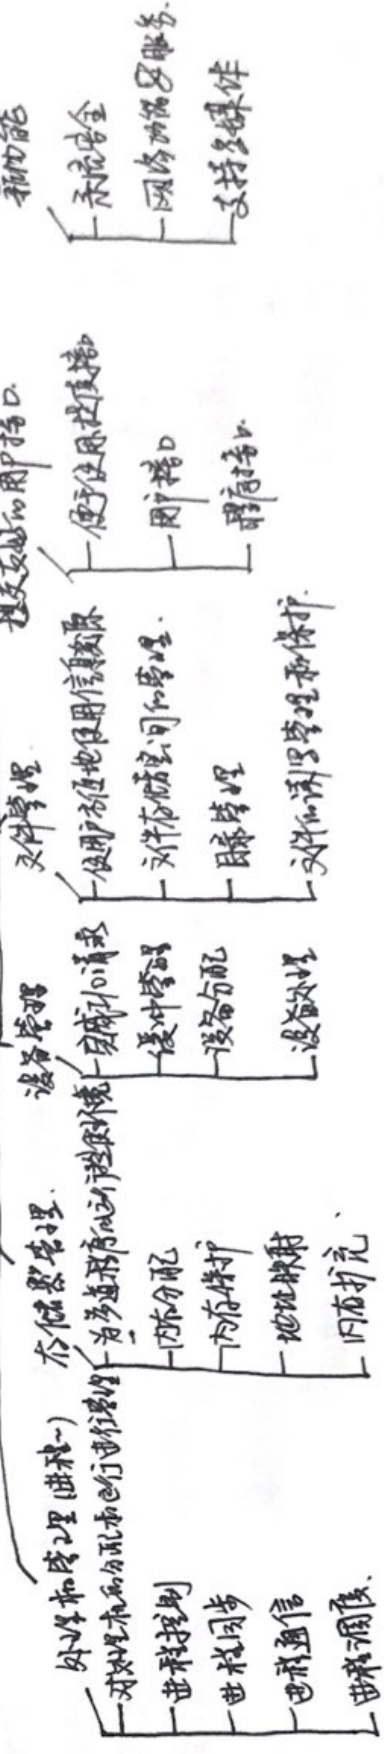 处理机管理(进程~)
对处理机的分配和运行进行管理
进程控制
进程同步
进程通信
进程调度、
存储器管理.
为多道程序的运行提供环境
内存分配
内存保护
地址映射
内存扩充、
设备管理
完成I/O请求
缓冲管理
设备分配
设备处理
文件管理.
使用户方便地使用信息资源
文件存储空间的管理.
目录管理
文件的读写管理和保护.
提交友好的用户接口.
便于使用提供接口
用户接口
程序接口.
新功能
系统安全
网络功能及服务.
支持多媒体